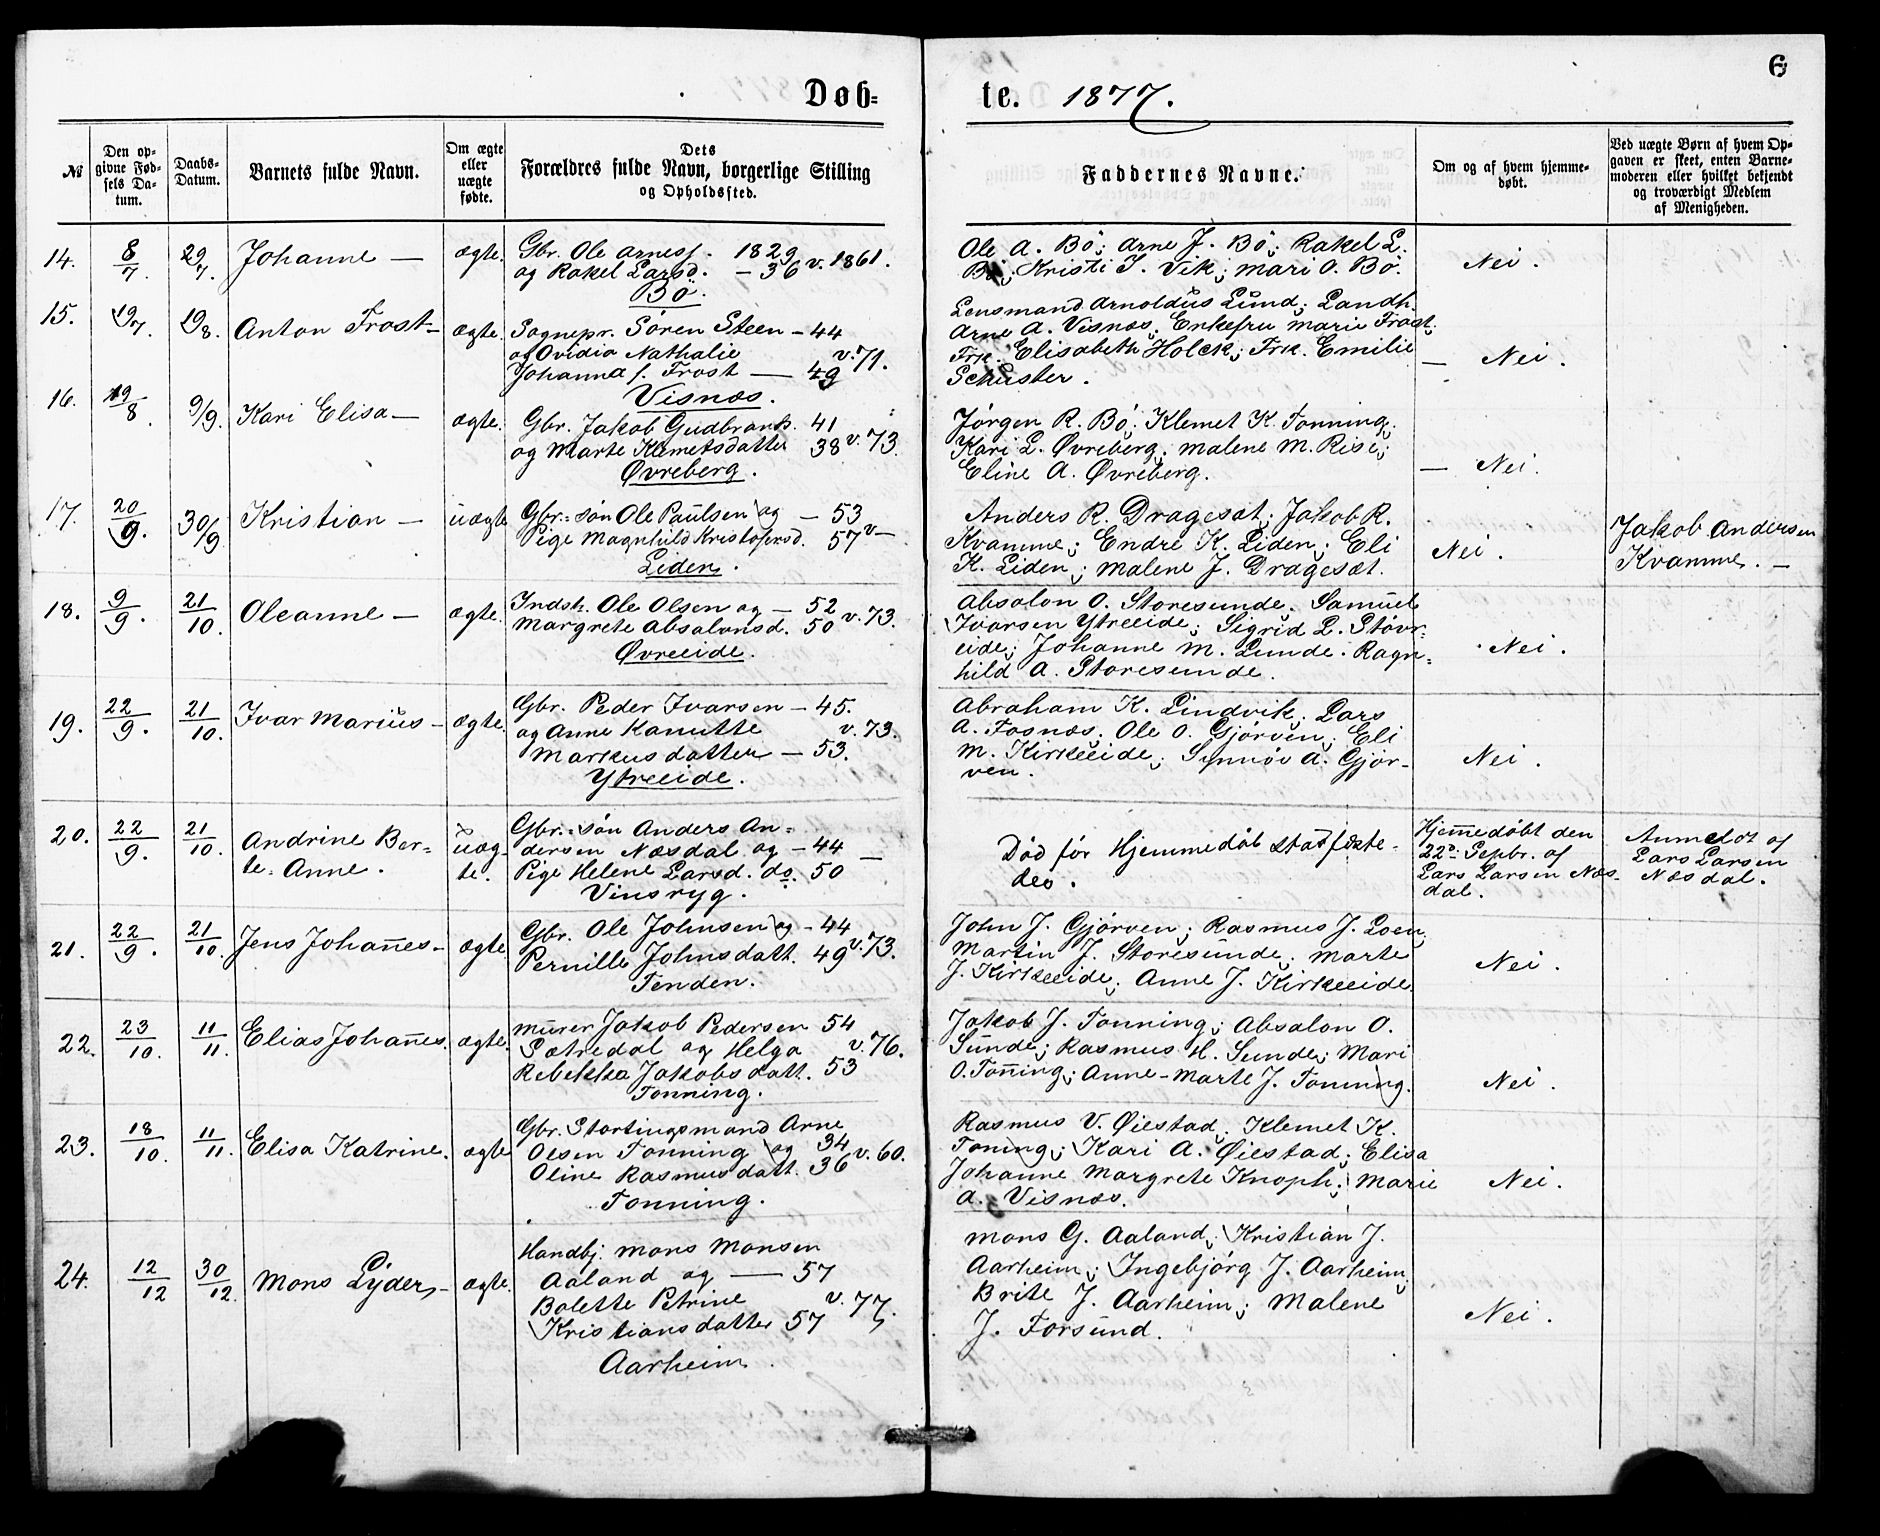 Døb=
te. 1877.
6
№
Den op=
givne Fød=
sels Da=
tum.
Daabs=
Datum.
Barnets fulde Navn.
Om ægte
eller
uægte
fødte.
Dets
Forældres fulde Navn, borgerlige Stilling
og Opholdssted.
Faddernes Navne.
Om og af hvem hjemme=
døbt.
Ved uægte Børn af hvem Op=
gaven er skeet, enten Barne=
moderen eller hvilket bekjendt
og troværdigt Medlem
af Menigheden.
14. 8/7. 29/7. Johanne — ægte.
Gbr. Ole Arness. 1829
og Rakel Larsd. — 36 v. 1861.
Bö.
Ole A. Bö; Arne J. Bö; Rakel L.
Bö; Kristi I. Vik; Mari O. Bö.
Nei.
15. 19/7. 19/8. Anton Frost — ægte.
Sognepr. Søren Steen — 44
og Ovidia Nathalie v. 71.
Johanna f. Frost — 49
Visnæs.
Lensmand Arnoldus Lund; Landh.
Arne A. Visnæs; Enkefru Marie Frost;
Frk. Elisabeth Holck; Frk. Emilie
Schuster.
— Nei.
16. 19/8. 9/9. Kari Elisa — ægte.
Gbr. Jakob Gudbrands. 41
og Marte Klemetsdatter 38 v. 73.
Øvreberg.
Jörgen R. Bö; Klemet K. Tonning;
Kari L. Øvreberg; Malene M. Rise;
Eline A. Øvreberg.
— Nei.
17. 20/9. 30/9 Kristian — uægte
Gbr.=søn Ole Paulsen og — 53
Pige Magnhild Kristofersd. 57 v —
Liden.
Anders R. Dragesæt; Jakob R.
Kvamme; Endre K. Liden; Eli
K. Liden; Malene J. Dragesæt.
Nei.
Jakob Andersen
Kvamme. —
18. 9/9. 21/10. Oleanne — ægte.
Indst. Ole Olsen og — 52
Margrete Absalonsd. 50 v. 73.
Øvreeide.
Absalon O. Storesunde; Samuel
Ivarsen Ytreeide; Sigrid L. Støvr=
eide; Johanne M. Lunde. Ragn=
hild A. Storesunde.
Nei.
19. 22/9. 21/10. Ivar Marius — ægte.
Gbr. Peder Ivarsen — 45.
og Anne Kanutte v. 73.
Markusdatter — 53.
Ytreeide.
Abraham K. Lindvik; Lars
A. Fosnæs; Ole O. Gjørven; Eli
M. Kirkeeide; Synnöv A. Gjör-
ven.
Nei.
20. 22/9. 21/10. Andrine Ber=
te. Anne.
uæg-
te.
Gbr.=søn Anders An=
dersen Næsdal og — 44 —
Pige Helene Larsd. do. 50
Vinsryg.
Död før Hjemmedøb stadfæste-
des.
Hjemmedøbt den
22d. Sepbr. af
Lars Larsen Næs-
dal.
Anmeldt af
Lars Larsen
Næsdal.
21. 22/9. 21/10. Jens Johannes — ægte
Gbr. Ole Johnsen og — 44
Pernille Johnsdatt. 49 v. 73.
Tenden.
John J. Gjørven; Rasmus J. Loen;
Martin J. Storesunde; Marte
J. Kirkeeide; Anne J. Kirkeeide.
Nei.
22. 23/10. 11/11. Elias Johannes. ægte.
Murer Jakob Pedersen 54
Sætredal og Helga v. 76.
Rebekka Jakobsdatt. 53
Tonning.
Jakob J. Tonning; Absalon O.
Sunde; Rasmus H. Sunde; Mari
O. Tonning; Anne-Marte J. Tonning.
Nei.
23. 18/10. 11/11. Elisa Katrine. ægte
Gbr. Stortingsmand Arne
Olsen Tonning og 34 v. 60.
Oline Rasmusdatt. 36
Tonning.
Rasmus V. Øiestad; Klemet K.
Toning; Kari A. Øiestad; Elisa
Johanne Margrete Knoph; Marie
A. Visnæs.
Nei.
24. 12/12 30/12. Mons Lyder — ægte.
Handbj. Mons Monsen
Aaland og — 57
Bolette Petrine v. 77.
Kristiansdatter 57
Aarheim.
Mons G. Aaland; Kristian J.
Aarheim; Ingebjörg J. Aarheim;
Brite J. Aarheim; Malene
J. Forsund.
Nei.